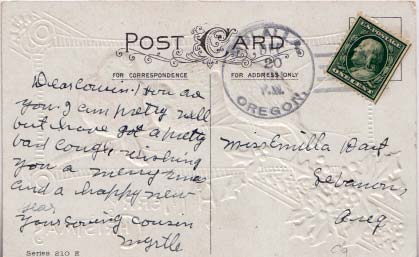 POST CARD
FOR CORRESPONDENCE
FOR ADDRESS ONLY
20
P.M.
OREGON.
U.S. POSTAGE
ONE CENT
Dear cousin! How are
you. I am pretty well
but have got a pretty
bad cough, wishing
you a merry xmas
and a happy new
year
Your loving cousin
Myrtle
Miss Emilla
Lebanon,
Oreg
Series 210 E